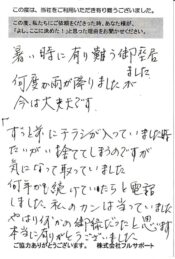 この度は、当社をご利用いただき有り難うございました。
この度、私たちにご依頼をくださった時、あなた様が、
「よし、ここに決めた！」と思った理由をお聞かせください。
暑い時に有り難う御座居
ました
何度か雨が降りましたが
今は大丈夫です。
ずっと前にチラシが入っていました時
たいがい捨ててしまうのですが
気になって取っていました
何年かも続けていたらと電話
しました、私のカンは当たって
やはり何かの御縁だったと思います
本当に有りがとうございました
ご協力ありがとうございます。 株式会社フルサポート